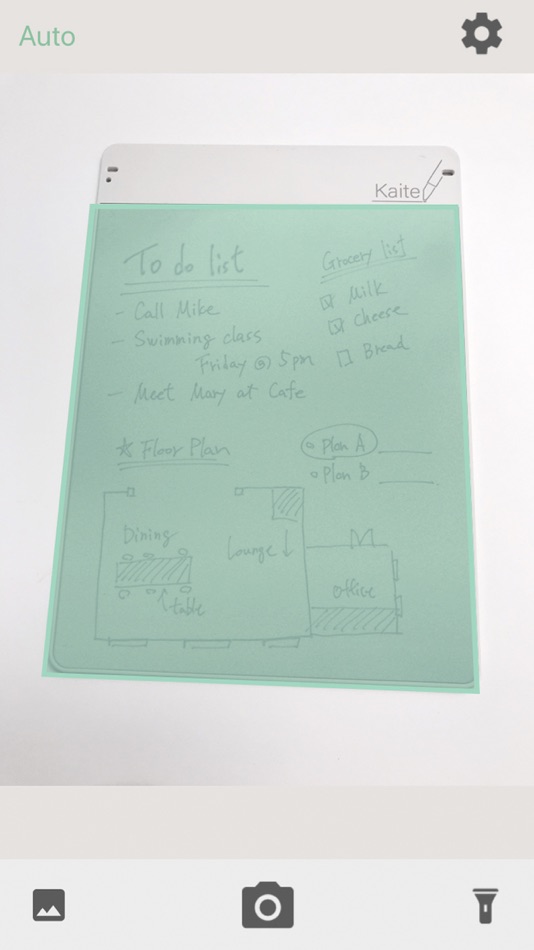 Auto
Kaite
To do list
- Call Mike
- Swimming class
Friday @ 5pm
- Meet Mary at Cafe
Grocery list
Milk
Cheese
Bread
☆ Floor Plan
Plan A
Plan B
Dining
Lounge ↓
table
office